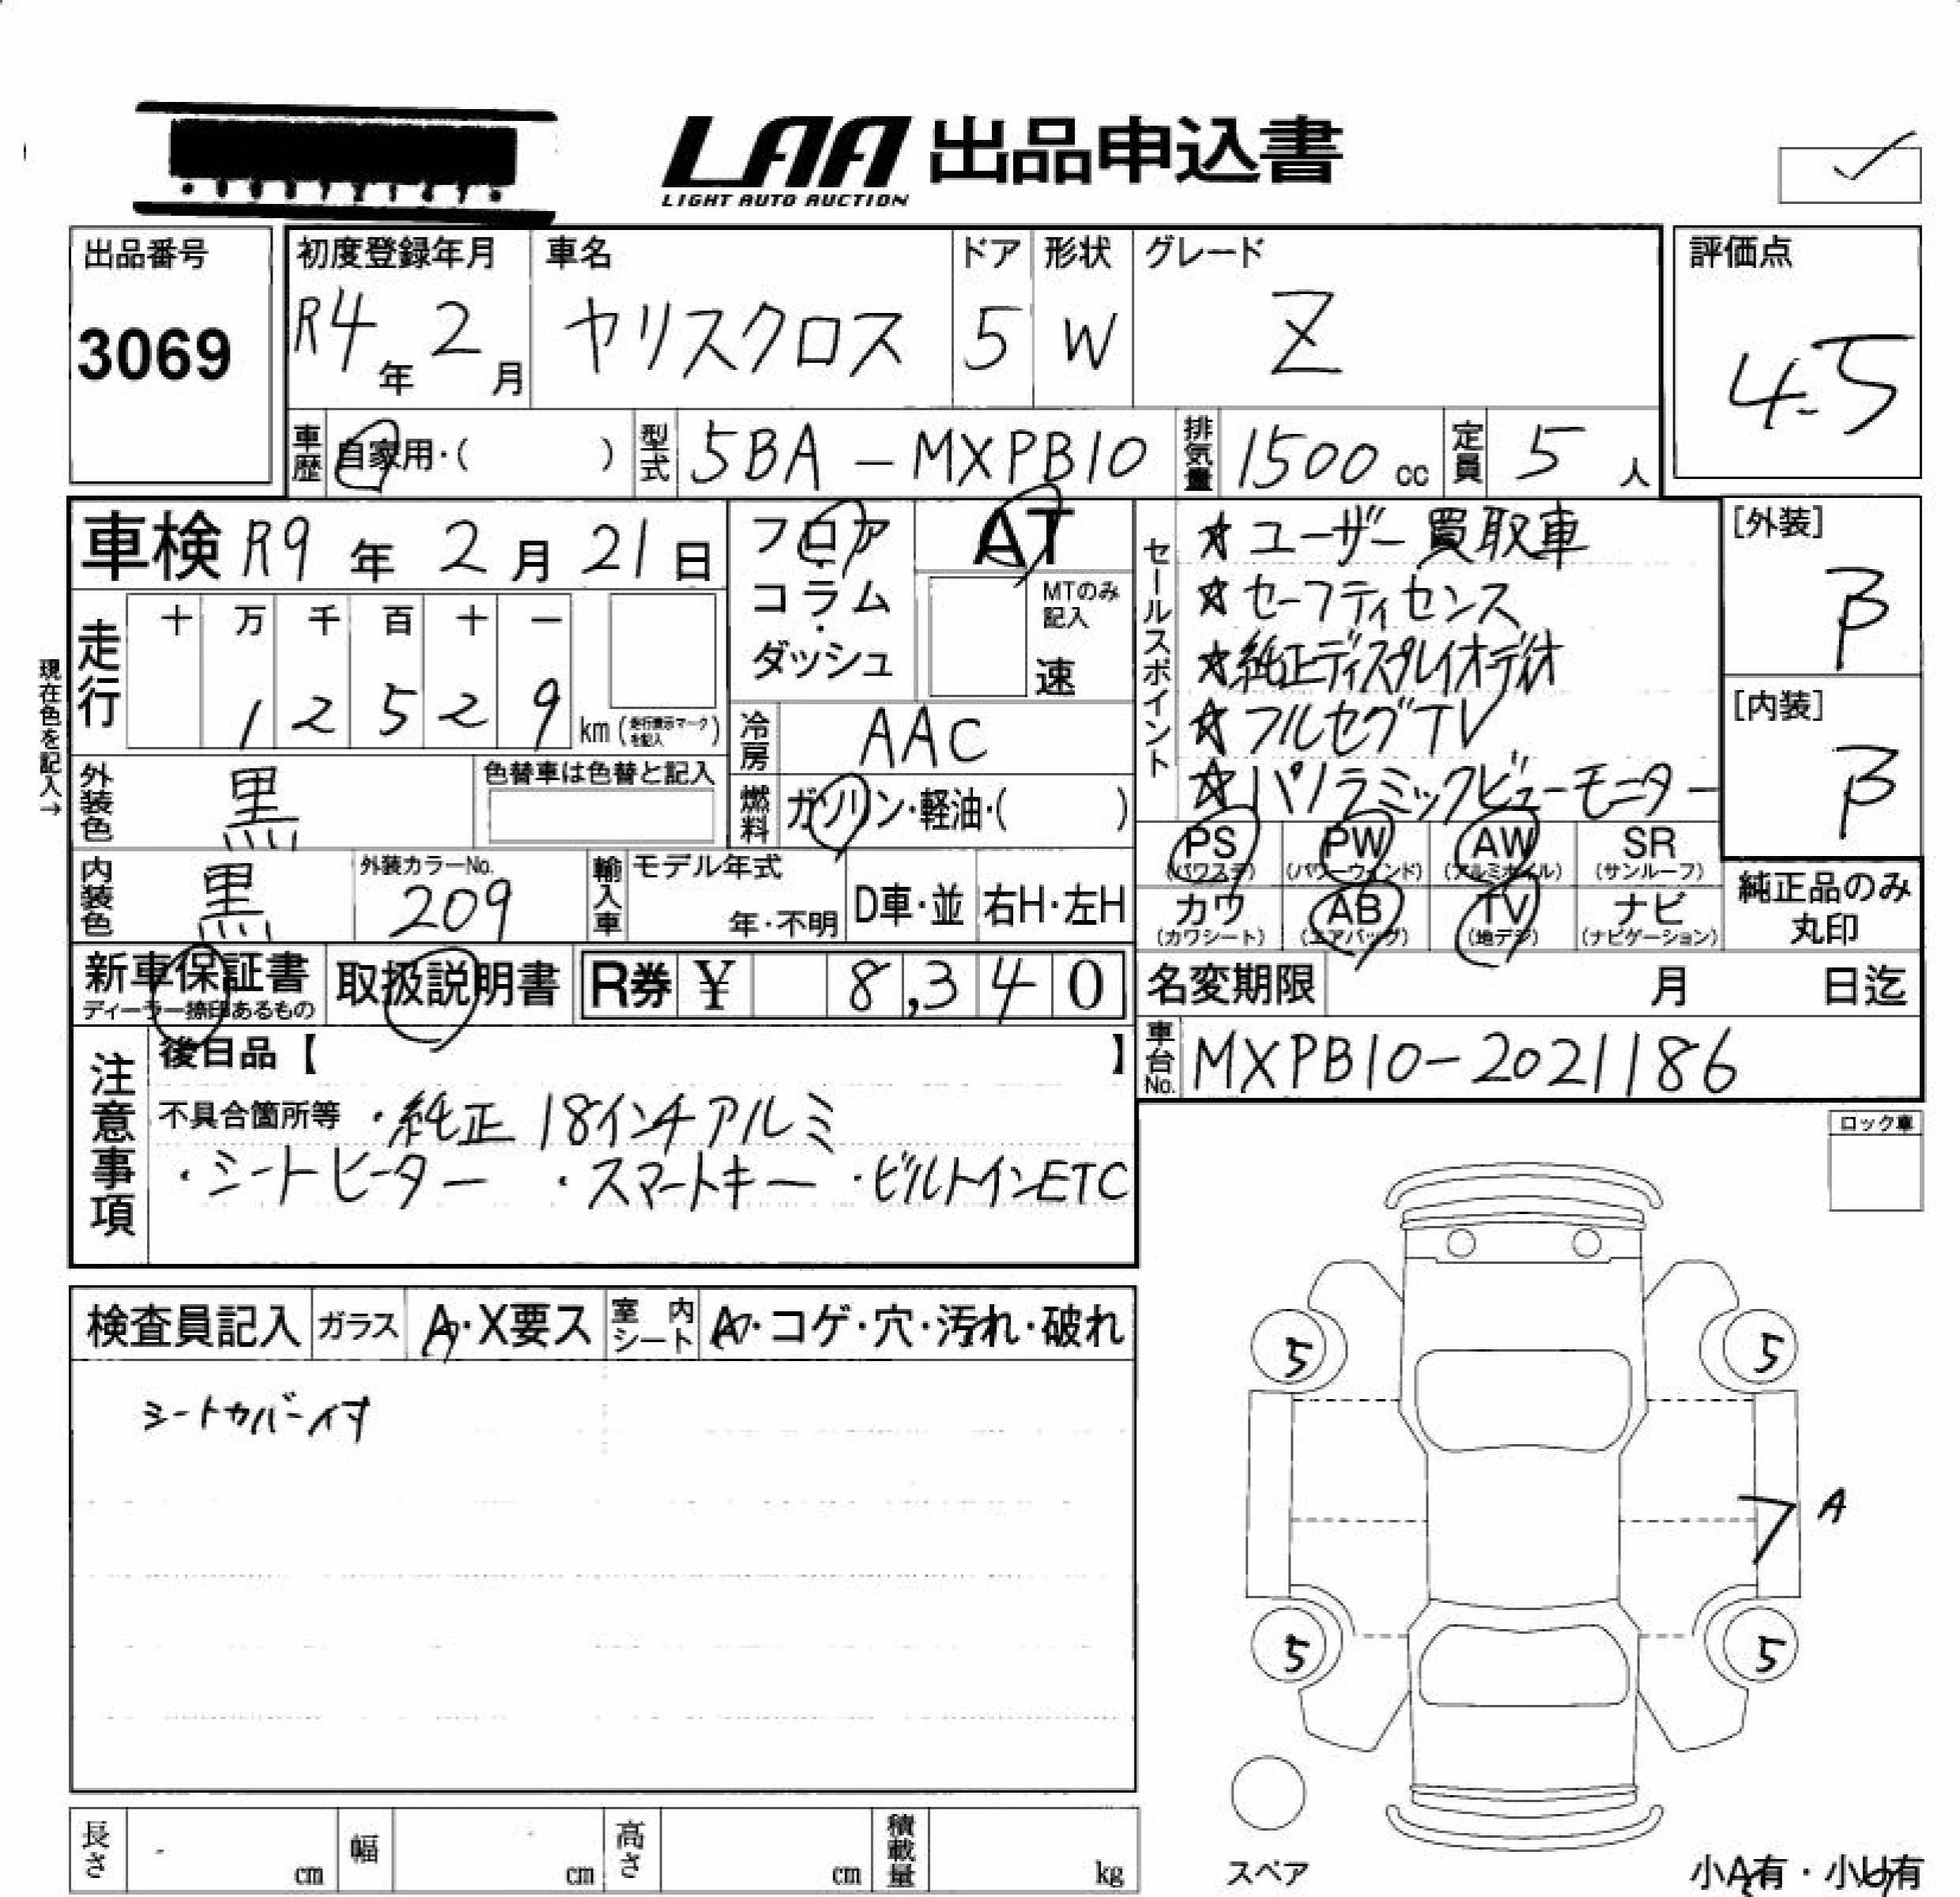 LAA 出品申込書
LIGHT AUTO AUCTION
出品番号
3069
初度登録年月
R4年 2月
車名
ヤリスクロス
ドア
5
形状
W
グレード
Z
評価点
4.5
車歴 自家用・( )
型式 5BA - MXPB10
排気量 1500 cc
定員 5 人
車検 R9 年 2 月 21 日
走行 十 万 千 百 十 一
1 2 5 2 9 km (走行表示マークを記入)
現在色を記入→
外装色 黒
色替車は色替と記入
内装色 黒
外装カラーNo. 209
フロア・コラム・ダッシュ
AT
MTのみ記入
速
冷房 AAC
燃料 ガソリン・軽油・( )
輸入車 モデル年式 年・不明 D車・並 右H・左H
セールスポイント
☆ユーザー買取車
☆セーフティセンス
☆純正ディスプレイオーディオ
☆フルセグTV
☆パノラミックビューモニター
[外装]
B
[内装]
B
PS (パワステ) PW (パワーウィンド) AW (アルミホイル) SR (サンルーフ)
カワ (カワシート) AB (エアバッグ) TV (地デジ) ナビ (ナビゲーション)
純正品のみ丸印
新車保証書
ディーラー捺印あるもの
取扱説明書
R券 ¥ 8,340
名変期限 月 日迄
車台No. MXPB10-2021186
注意事項
後日品【 】
不具合箇所等 ・純正18インチアルミ
・シートヒーター ・スマートキー ・ビルトインETC
ロック車
検査員記入 ガラス A・X要ス 室内シート A・コゲ・穴・汚れ・破れ
シートカバー付
5 5
A
5 5
スペア
小A有・小U有
長さ cm 幅 cm 高さ cm 積載量 kg